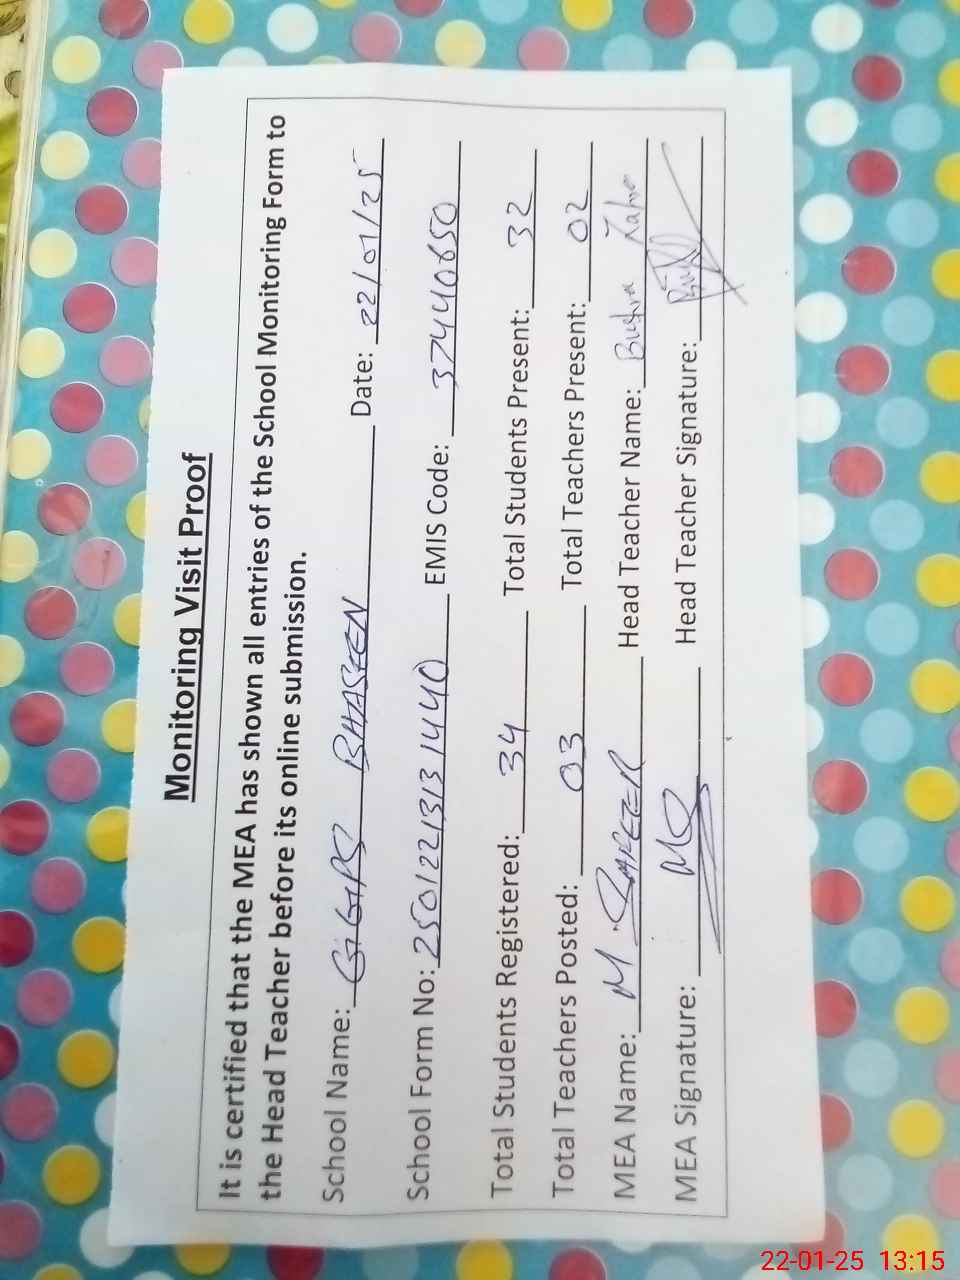 Monitoring Visit Proof
It is certified that the MEA has shown all entries of the School Monitoring Form to
the Head Teacher before its online submission.
School Name: GGPS BHASEEN Date: 22/01/25
School Form No: 2501221313 1440 EMIS Code: 37440650
Total Students Registered: 34 Total Students Present: 32
Total Teachers Posted: 03 Total Teachers Present: 02
MEA Name: M SAFEER Head Teacher Name: Bushra
MEA Signature: MS Head Teacher Signature:
22-01-25 13:15